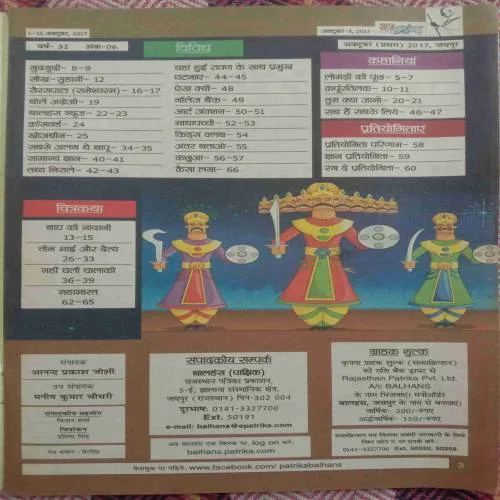 1-15 अक्टूबर, 2017
अक्टूबर-1, 2017
वर्ष- 32 अंक-06
विविध
अक्टूबर (प्रथम) 2017, जयपुर
गुदगुदी- 8-9
सीख-सुहानी- 12
सैरसपाटा (रामेश्वरम)- 16-17
बोलें अंग्रेजी- 19
बालहंस न्यूज- 22-23
क्रॉसवर्ड- 24
खोजबीन- 25
सबसे अलग थे बापू- 34-35
सामान्य ज्ञान- 40-41
तथ्य निराले- 42-43
यहां हुई रावण के साथ प्रमुख
घटनाएं- 44-45
ऐसा क्यों- 48
नॉलेज बैंक- 49
आर्ट जंक्शन- 50-51
माथापच्ची- 52-53
किड्स क्लब- 54
अंतर बताओ- 55
कछुआ- 56-57
कैसा लगा- 66
कहानियां
लोमड़ी की पूंछ- 5-7
कर्पूरतिलक- 10-11
तुम क्या जानो- 20-21
सब हैं सबके लिये- 46-47
प्रतियोगिताएं
प्रतियोगिता परिणाम- 58
ज्ञान प्रतियोगिता- 59
रंग दे प्रतियोगिता- 60
चित्रकथा
बाघ की नादानी
13-15
तीन भाई और दैत्य
26-33
नहीं चली चालाकी
36-39
महाभारत
62-65
संपादक
आनन्द प्रकाश जोशी
उप संपादक
मनीष कुमार चौधरी
संपादकीय सहयोग
किशन शर्मा
चित्रांकन
प्रतिमा सिंह
पृष्ठ सज्जा: शेरसिंह
संपादकीय सम्पर्क
बालहंस (पाक्षिक)
राजस्थान पत्रिका प्रकाशन,
5-ई, झालाना संस्थानिक क्षेत्र,
जयपुर (राजस्थान) पिन-302 004
दूरभाष: 0141-3327700
Ext. 50191
e-mail: balhans@epatrika.com
अब बालहंस एक क्लिक पर, log on करें:
balhans.patrika.com
ग्राहक शुल्क
कृपया ग्राहक शुल्क (सब्सक्रिप्शन)
की राशि बैंक ड्राफ्ट से
Rajasthan Patrika Pvt. Ltd.
A/c BALHANS
के नाम भिजवाएं। मनीऑर्डर
बालहंस, जयपुर के नाम से बनवाएं।
वार्षिक: 300/-रुपए
अर्द्धवार्षिक: 150/-रुपए
सब्सक्रिप्शन एवं वितरण संबंधी जानकारी के लिये
0141-3327700 Ext. 50352, 50368
फेसबुक पर पढ़िये: www.facebook.com/ patrikabalhans
3